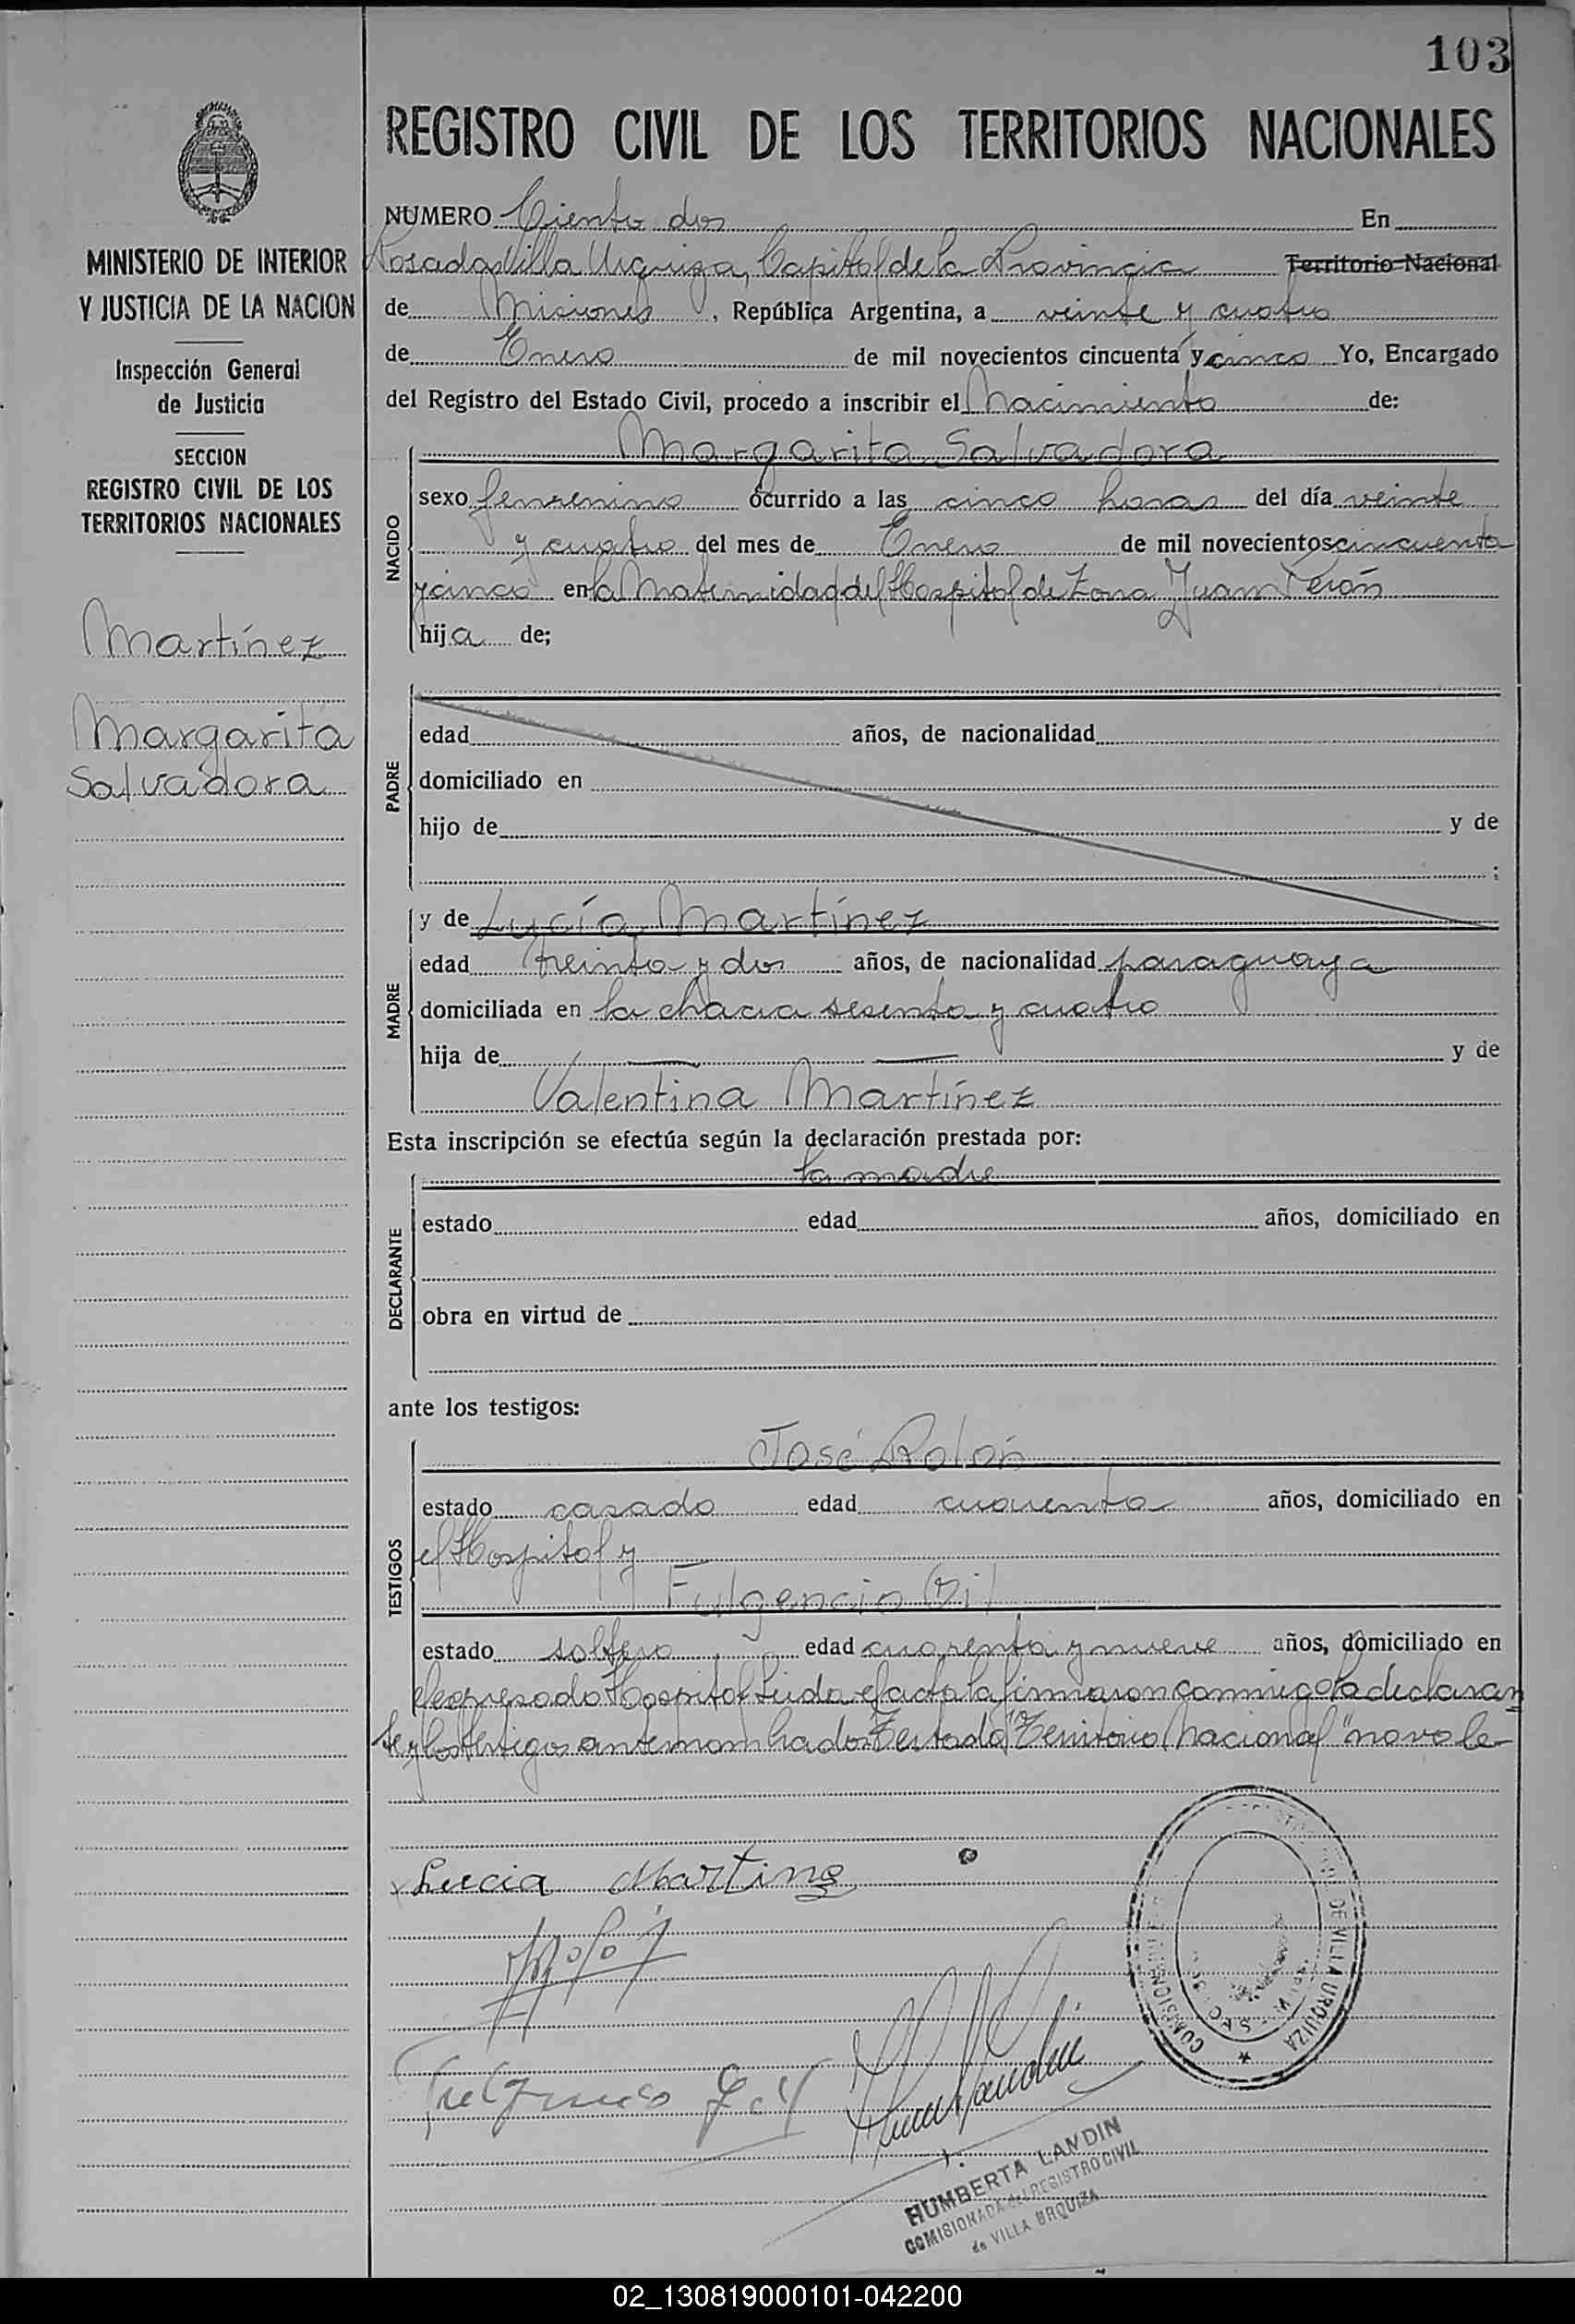 103
REGISTRO CIVIL DE LOS TERRITORIOS NACIONALES
MINISTERIO DE INTERIOR
Y JUSTICIA DE LA NACION
Inspección General
de Justicia
SECCION
REGISTRO CIVIL DE LOS
TERRITORIOS NACIONALES
Martínez
Margarita
Salvadora
NUMERO Ciento dos En
Posadas Villa Urquiza, Capital de la Provincia Territorio Nacional
de Misiones, República Argentina, a veinte y cuatro
de Enero de mil novecientos cincuenta y cinco Yo, Encargado
del Registro del Estado Civil, procedo a inscribir el Nacimiento de:
Margarita Salvadora
NACIDO
sexo femenino ocurrido a las cinco horas del día veinte
y cuatro del mes de Enero de mil novecientos cincuenta
y cinco en la Maternidad del Hospital de Zona Juan Perón
hija de;
PADRE
edad años, de nacionalidad
domiciliado en
hijo de y de
;
MADRE
y de Lucía Martínez
edad treinta y dos años, de nacionalidad paraguaya
domiciliada en la chacra sesenta y cuatro
hija de — — y de
Valentina Martínez
Esta inscripción se efectúa según la declaración prestada por:
la madre
DECLARANTE
estado edad años, domiciliado en
obra en virtud de
ante los testigos:
José Rolón
TESTIGOS
estado casado edad cuarenta años, domiciliado en
el Hospital y
Fulgencio Gil
estado soltero edad cuarenta y nueve años, domiciliado en
el expresado Hospital Leida el acta la firmaron conmigo la declaran
te y los testigos antemombrados Testado "Territorio Nacional" no vale
Lucia Martinez
HUMBERTA LANDIN
COMISIONADA del REGISTRO CIVIL
de VILLA URQUIZA
DE VILLA URQUIZA
02_130819000101-042200